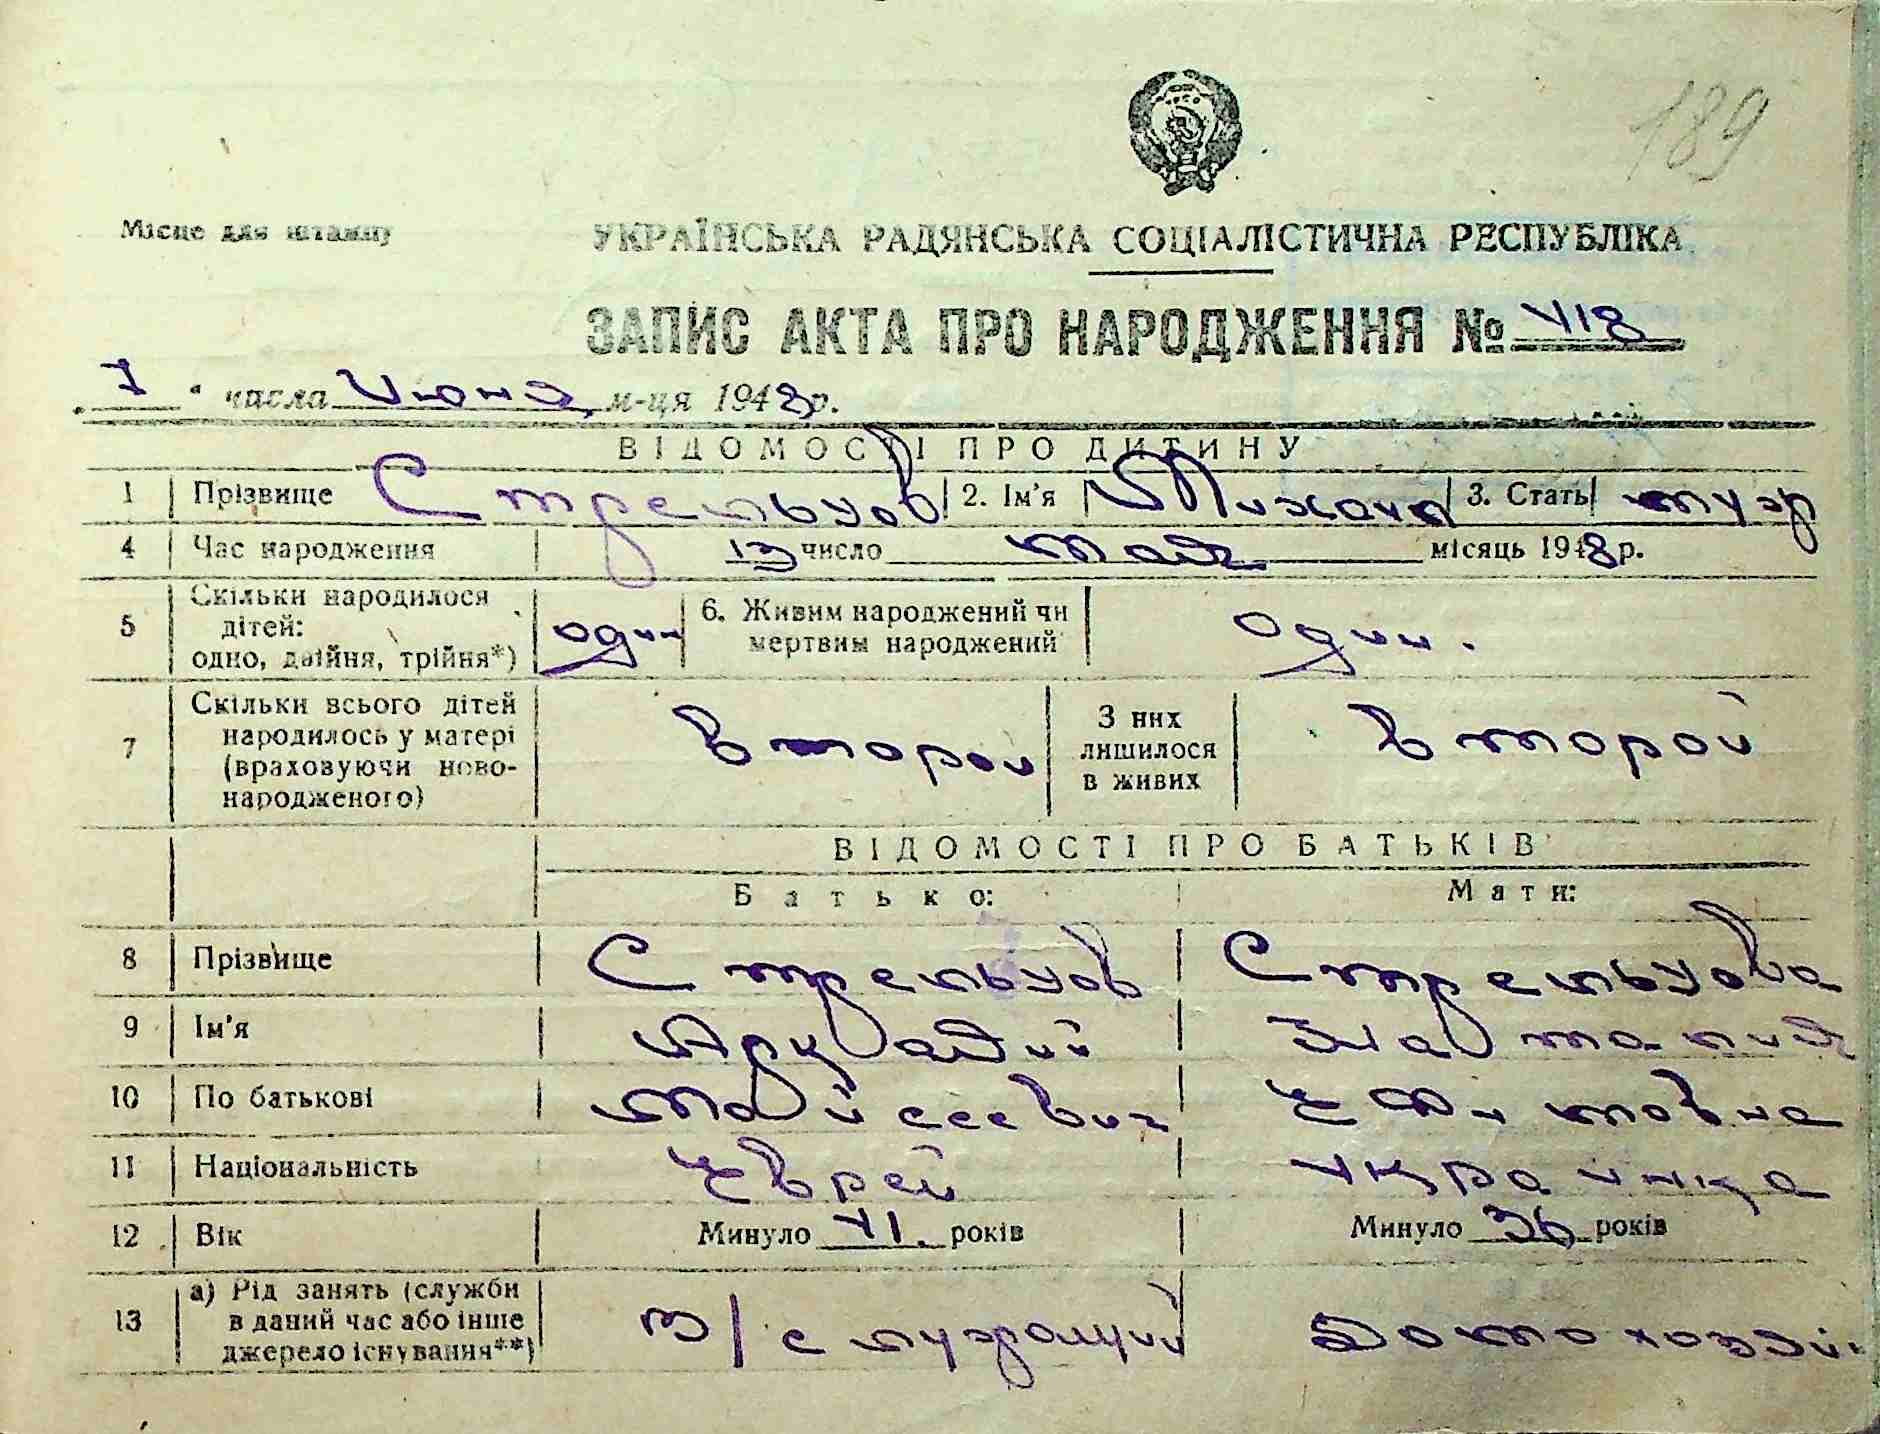 189
Місце для штампу
УКРАЇНСЬКА РАДЯНСЬКА СОЦІАЛІСТИЧНА РЕСПУБЛІКА
ЗАПИС АКТА ПРО НАРОДЖЕННЯ № 418
„ 7 “ числа Июня м-ця 1948 р.
ВІДОМОСТІ ПРО ДИТИНУ
1 Прізвище Стрельцов 2. Ім'я Михаил 3. Стать муж
4 Час народження 13 число мая місяць 1948 р.
5 Скільки народилося дітей: одно, двійня, трійня*) один 6. Живим народжений чи мертвим народжений один.
7 Скільки всього дітей народилось у матері (враховуючи ново-народженого) второй З них лишилося в живих второй
ВІДОМОСТІ ПРО БАТЬКІВ
Батько: Мати:
8 Прізвище Стрельцов Стрельцова
9 Ім'я Аркадий Наталия
10 По батькові Мойсеевич Ефимовна
11 Національність Еврей украинка
12 Вік Минуло 41. років Минуло 36 років
13 а) Рід занять (служби в даний час або інше джерело існування**) Домохозяй